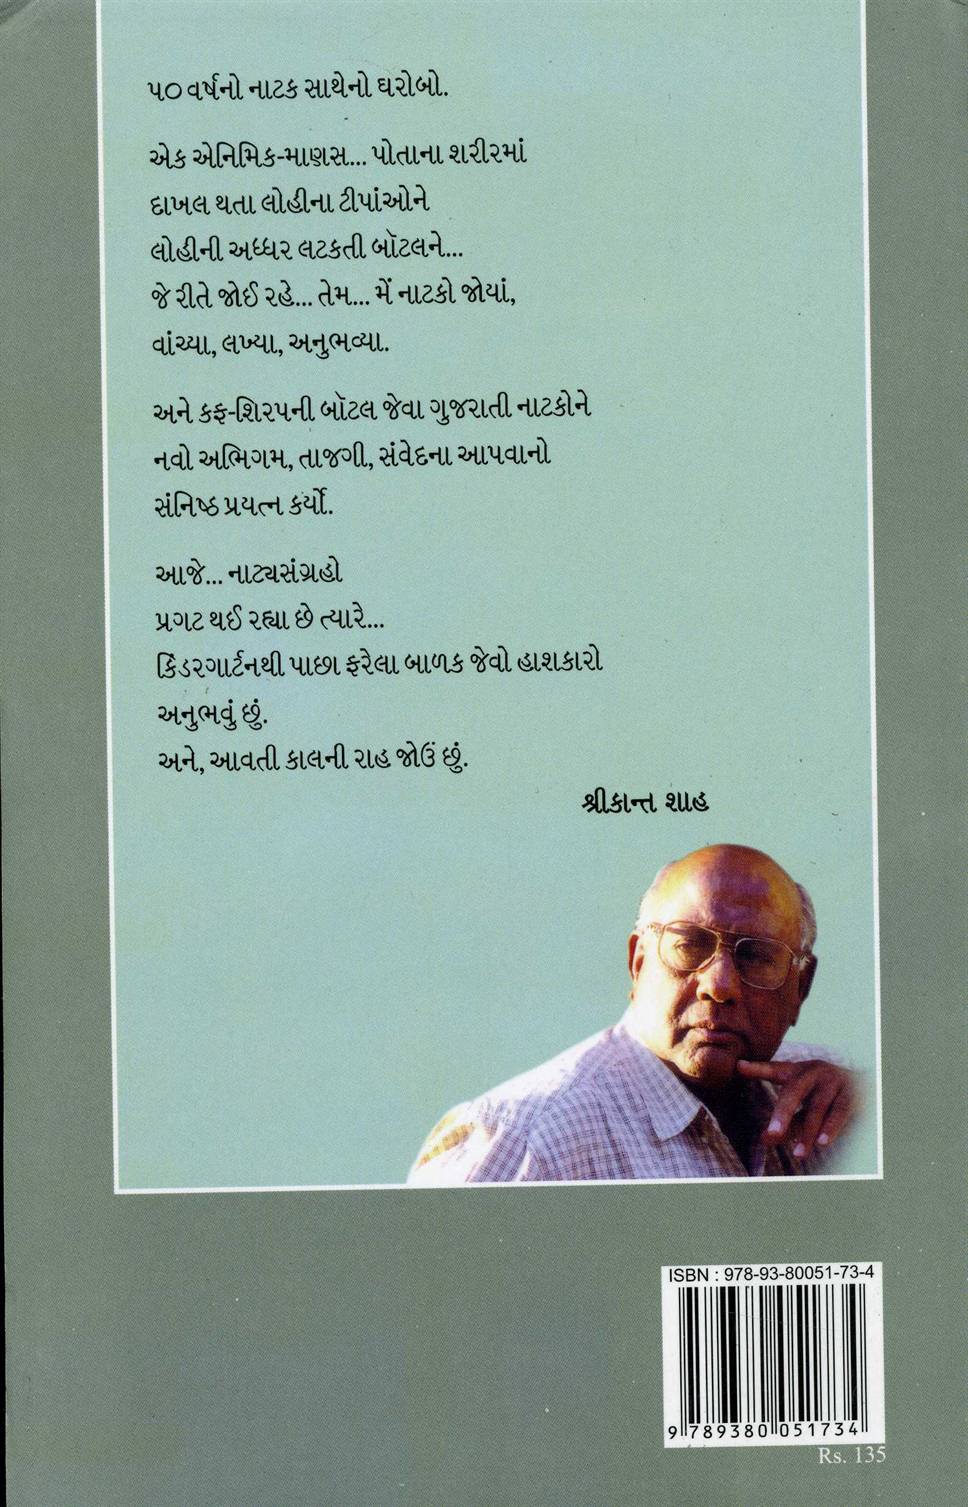 ૫૦ વર્ષનો નાટક સાથેનો ઘરોબો.
એક એનિમિક-માણસ... પોતાના શરીરમાં
દાખલ થતા લોહીના ટીપાંઓને
લોહીની અધ્ધર લટકતી બૉટલને...
જે રીતે જોઈ રહે... તેમ... મેં નાટકો જોયાં,
વાંચ્યા, લખ્યા, અનુભવ્યા.
અને કફ-શિરપની બૉટલ જેવા ગુજરાતી નાટકોને
નવો અભિગમ, તાજગી, સંવેદના આપવાનો
સંનિષ્ઠ પ્રયત્ન કર્યો.
આજે... નાટ્યસંગ્રહો
પ્રગટ થઈ રહ્યા છે ત્યારે...
કિંડરગાર્ટનથી પાછા ફરેલા બાળક જેવો હાશકારો
અનુભવું છું.
અને, આવતી કાલની રાહ જોઉં છું.
શ્રીકાન્ત શાહ
ISBN : 978-93-80051-73-4
9 789380 051734
Rs. 135